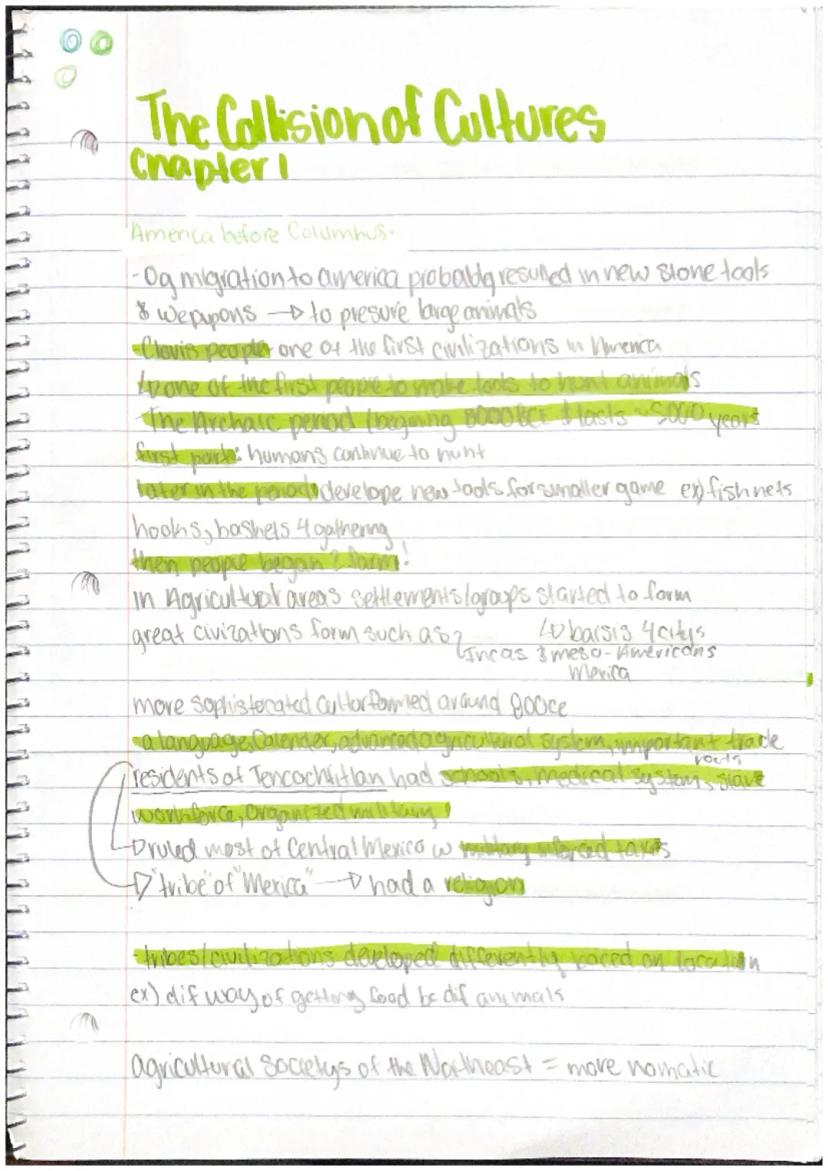 The Collision of Cultures
Chapter 1
America before Columbus.
- Og migration to america probably resulted in new stone tools
& weapons → to presure large animals
- Clovis people one of the first civilizations in America
↳ one of the first people to make tools to hunt animals
- The Archaic period (begining 8000 BCE & lasts ~5000 years
first part: humans continue to hunt
later in the period develope new tools for smaller game ex) fishnets
hooks, baskets 4 gathering
then people began 2 farm!
in Agricultural areas settlements/groups started to form
great civizations form such as ↳ baisis 4 citys
Incas & meso-Americans
Mexica
more sophistecated cultor formed around 800ce
a language, Calender, advanced agricultural system, important trade
roots
residents of Tencochtitlan had schools, medical systems, slave
workforce, Organized military
→ ruled most of Central Mexico w military inforced taxes
→ "tribe" of "Mexica" → had a religion
- tribes/civilizations developed differently based on location
ex) dif way of getting food bc dif animals
agricultural societys of the Northeast = more nomatic